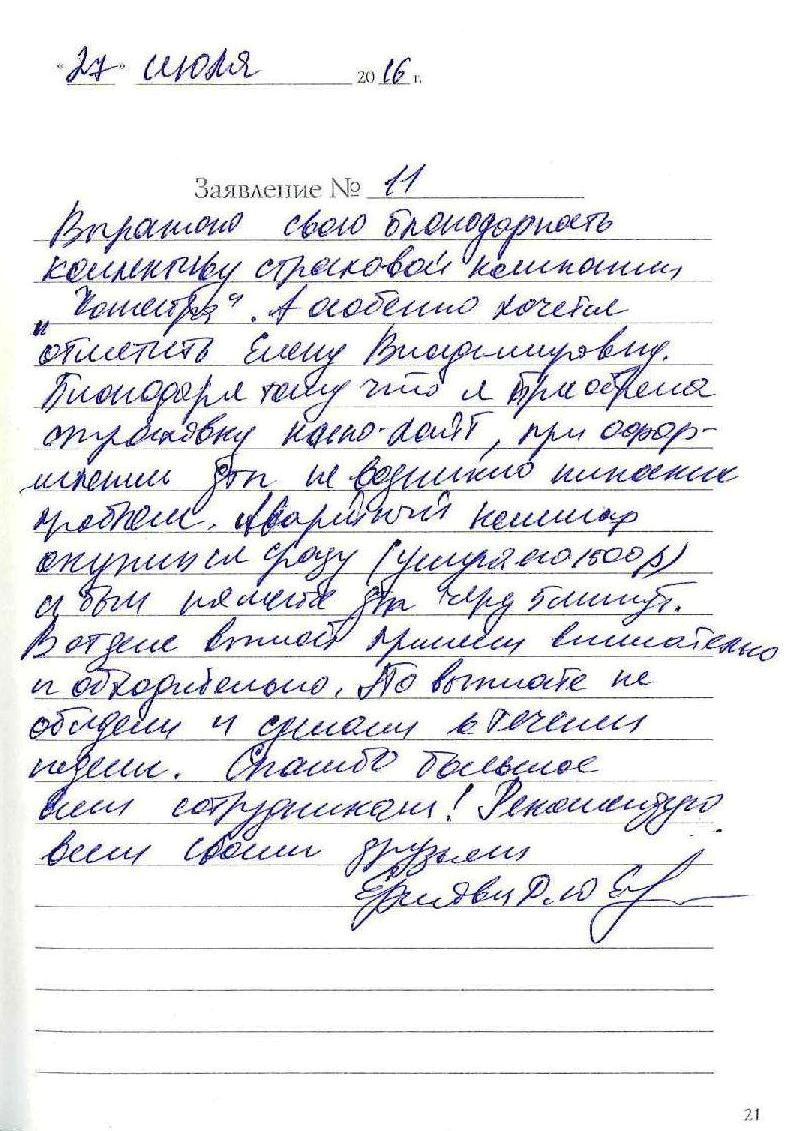 "27" июля 2016 г.
Заявление № 11
Выражаю свою благодарность
коллективу страховой компании
отметить Елену Владимировну.
Благодаря тому что я приобрела
страховку каско-лайт, при офор-
млении дтп не возникло никаких
проблем. Аварийный комиссар
сразу (
и был на месте дтп через 5 минут.
В отделе выплат приняли внимательно
и обходительно. По выплате не
обидели и сделали в течении
недели. Спасибо большое
всем сотрудникам! Рекомендую
всем своим друзьям
21